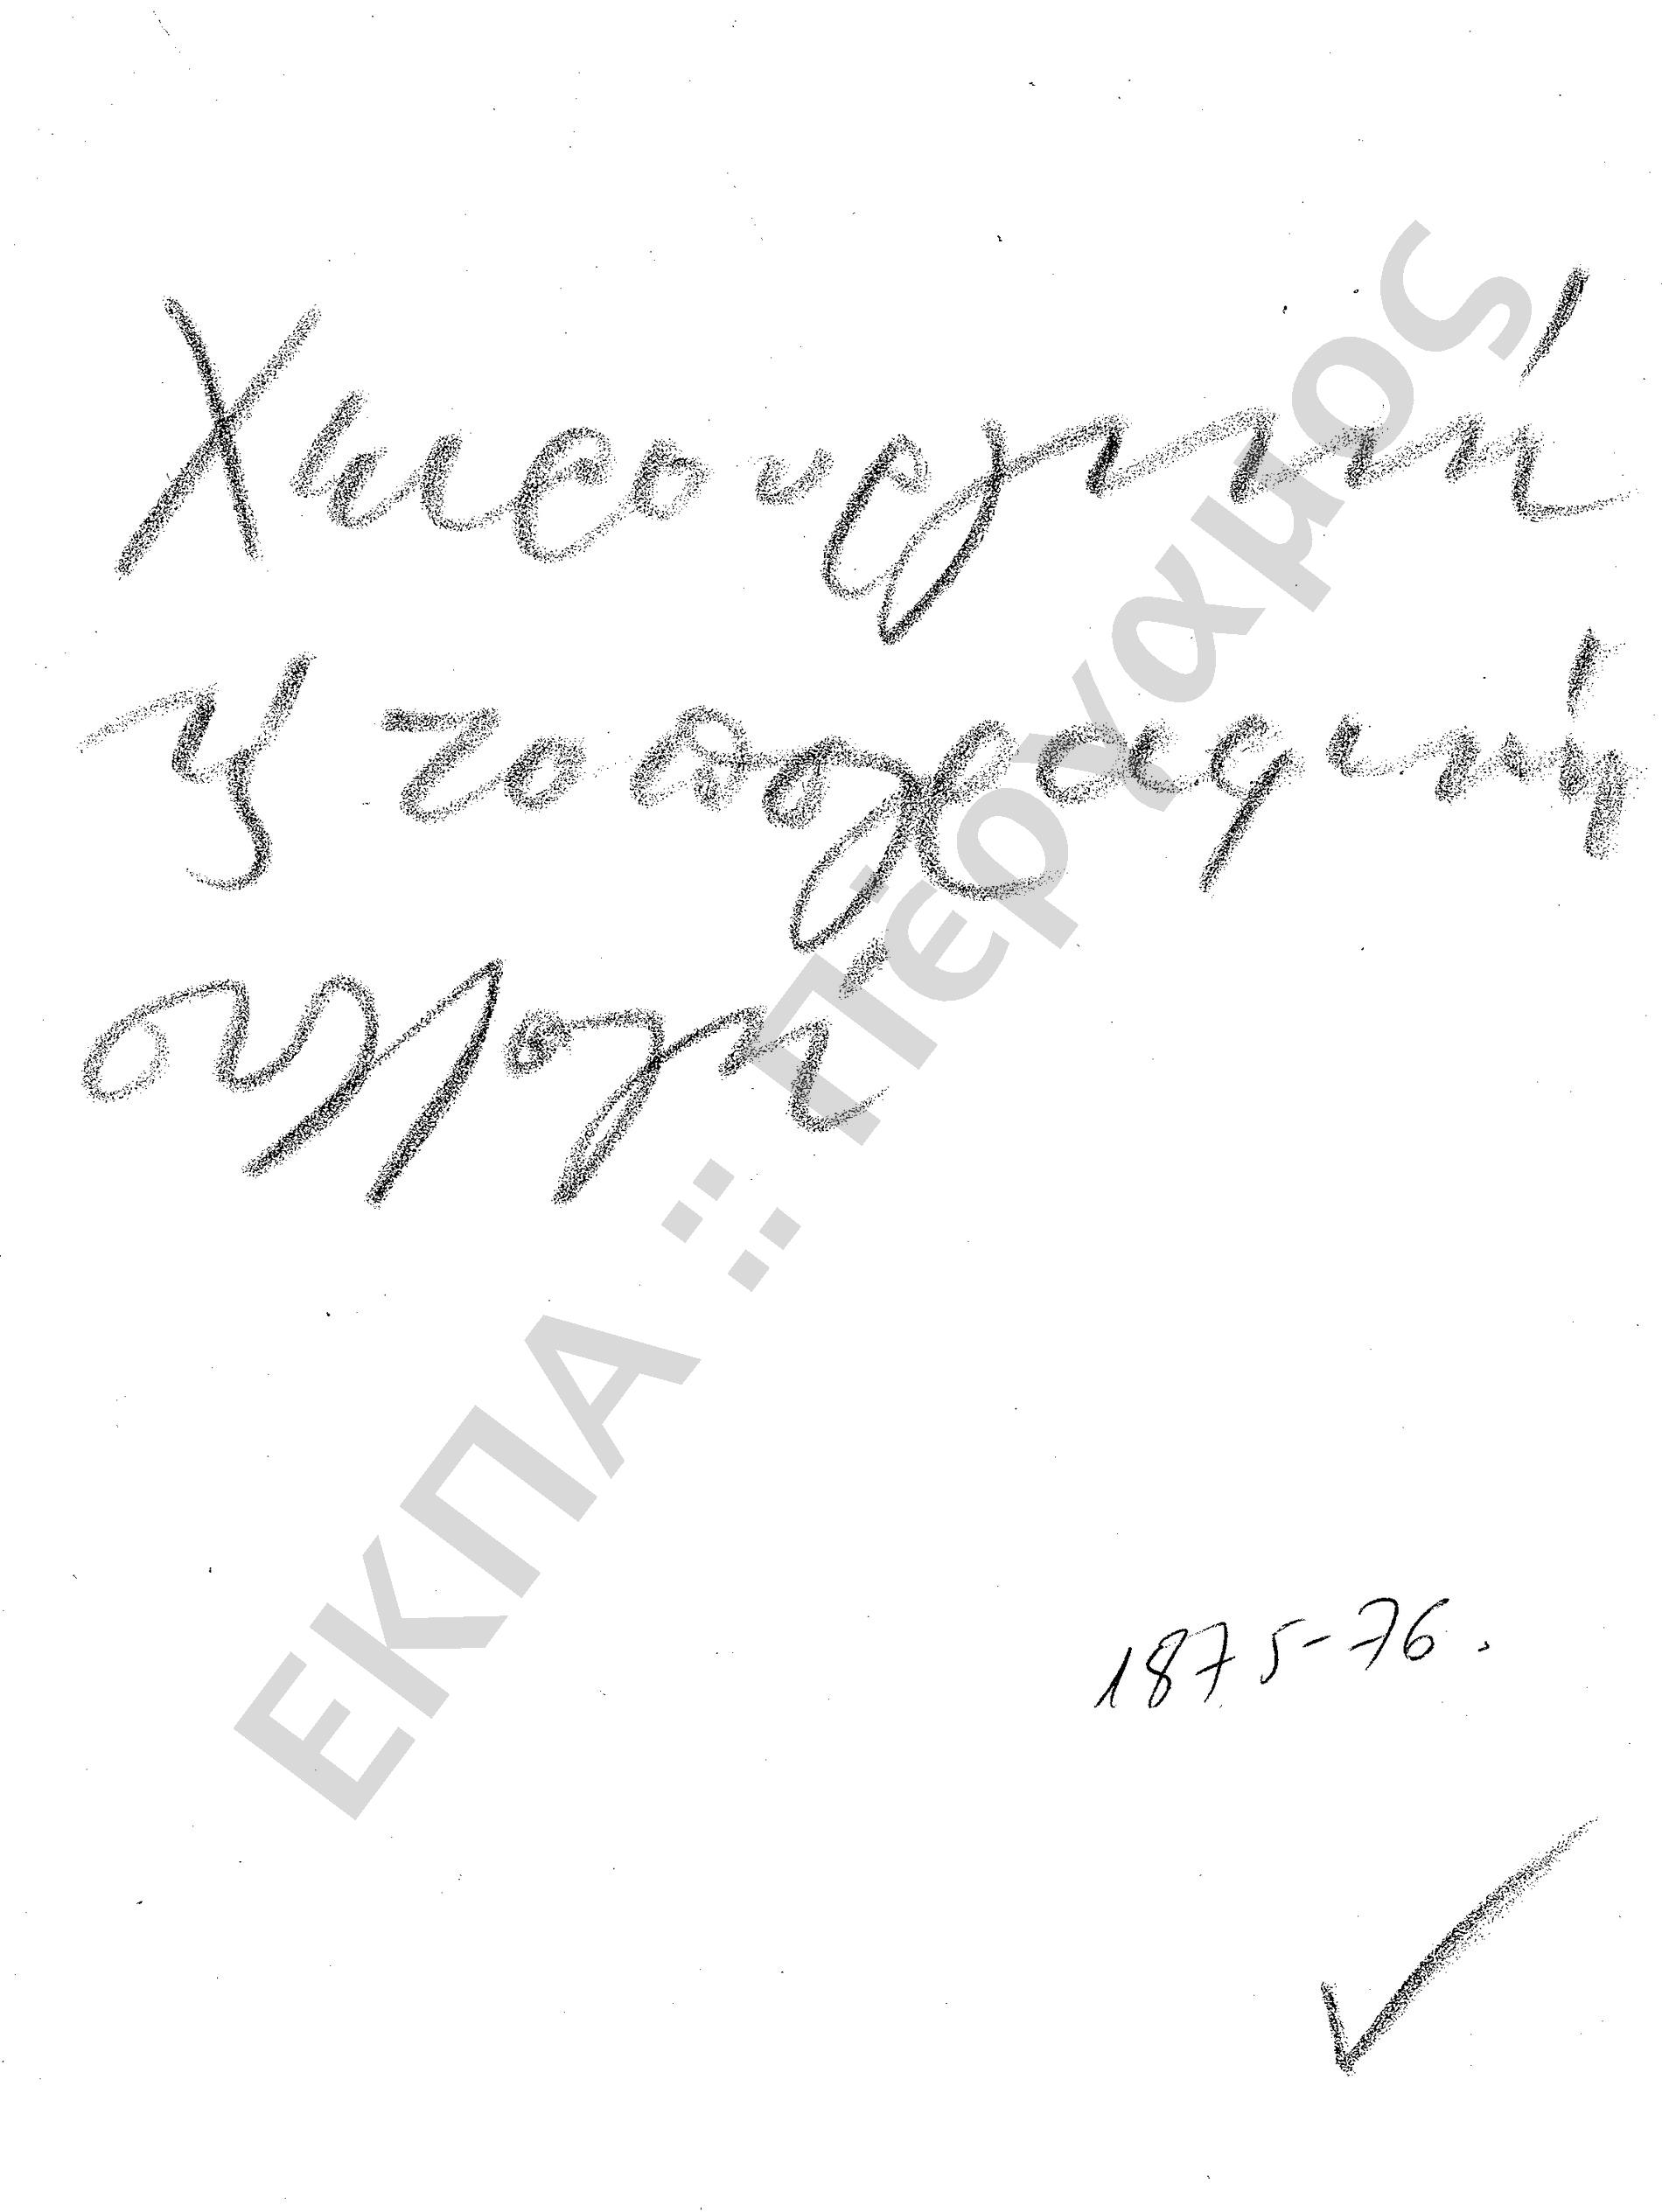 Χειρουργική
ϗ τοπογραφική
ανατομή
1875-76.
ΕΚΠΑ :: Πέργαμος